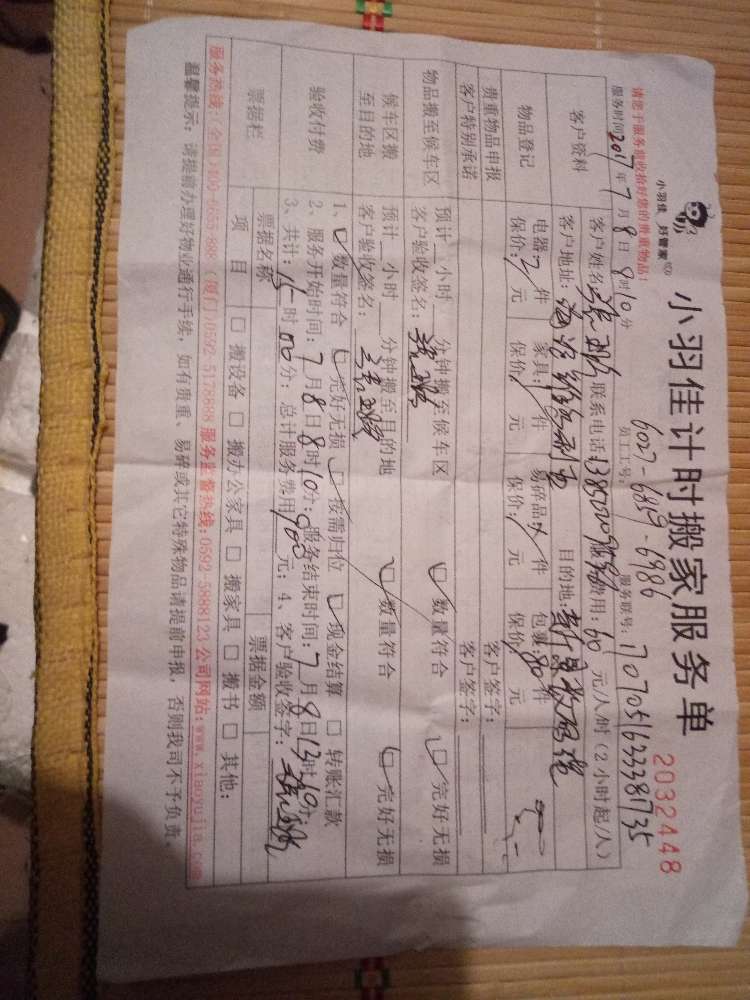 小羽佳 好管家
小羽佳计时搬家服务单
2032448
请您于服务前收拾好您的贵重物品!
员工工号: 6027-6859-6986
服务联号:
服务时间2017年7月8日8时10分
客户资料
客户姓名: 联系电话 服务费用: 60 元/人/时 (2小时起/人)
客户地址: 目的地:
物品登记
电器: 2件 家具: 件 易碎品: 件 包裹: 80件
保价: 元 保价: 元 保价: 元 保价: 元
贵重物品申报 客户签字:
客户特别承诺 客户签字:
物品搬至候车区
预计 小时 分钟搬至候车区 数量符合 完好无损
客户验收签名:
候车区搬至目的地
预计 小时 分钟搬至目的地 数量符合 完好无损
客户验收签名:
验收付费
1、数量符合 完好无损 按需归位 现金结算 转账汇款
2、服务开始时间: 7月8日8时10分; 服务结束时间: 7月8日13时10分
3、共计: 时00分; 总计服务费用900元; 4、客户验收签字:
票据栏
票据名称 票据金额
项目 搬设备 搬办公家具 搬家具 搬书 其他:
服务热线: (全国)400-655-888 (厦门)0592-5178888 服务监督热线: 0592-5888123 公司网站: www.xiaoyujia.com
温馨提示: 请提前办理好物业通行手续, 如有贵重、易碎或其它特殊物品请提前申报, 否则我司不予负责。